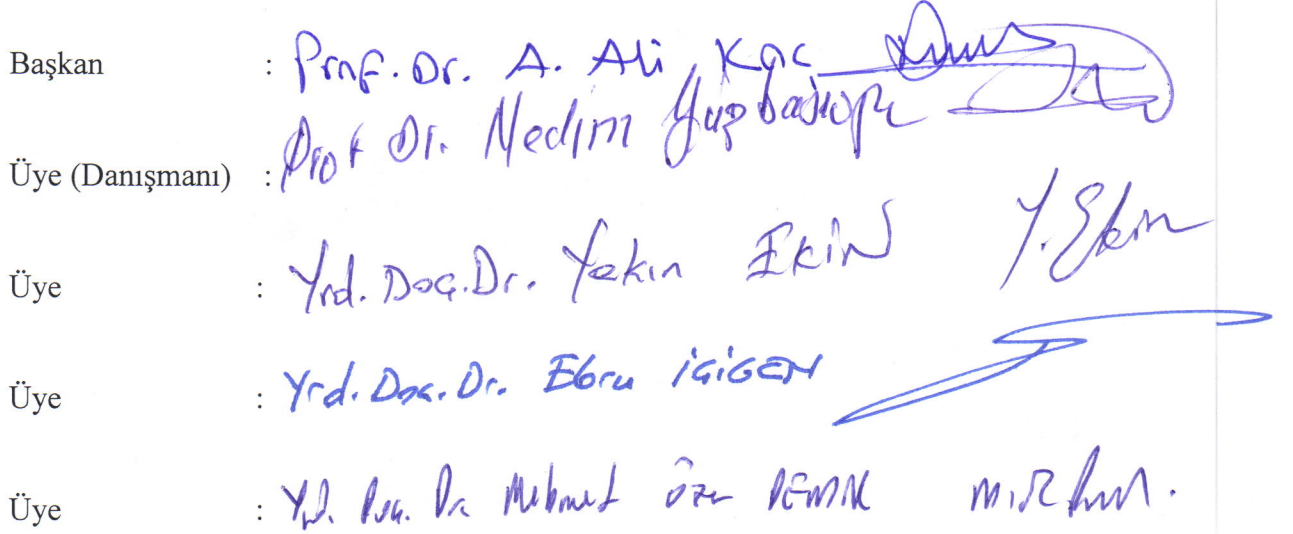 Başkan : Prof. Dr. A. Ali Koç
Üye (Danışmanı) : Prof Dr. Nedim Yüzbaşıoğlu
Üye : Yrd. Doç. Dr. Yakın Ekin Y. Ekin
Üye : Yrd. Doç. Dr. Ebru İÇİGEN
Üye : Yrd. Doç. Dr. Mehmet Özer DEMİR